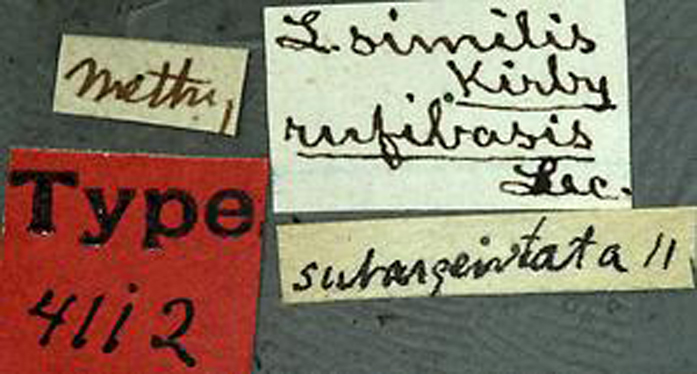 L. similis
Kirby
rufibasis
Lec.
Methy
Type
4112
subargentata 11